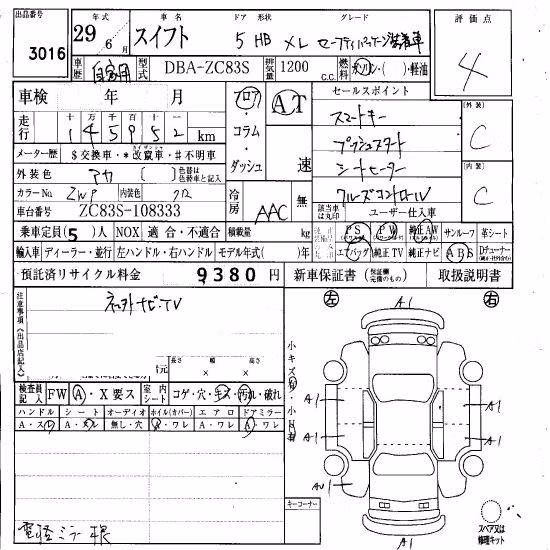 出品番号 3016
年式 29年6月
車名 スイフト
ドア 形状 5 HB
グレード XL セーフティパッケージ装着車
評価点 4
車歴 自家用
型式 DBA-ZC83S
排気量 1200 c.c.
燃料 ガソリン・( )・軽油
車検 年 月
走行 十 万 千 百 十 一
1 4 5 9 5 2 km
メーター歴 $交換車・*改竄車・#不明車
外装色 アカ ( ) 色替は元色と記入
カラーNo. ZWP 内装色 クロ
車台番号 ZC83S-108333
フロア・コラム・ダッシュ
AT 速
冷房 AAC 無
セールスポイント
スマートキー
プッシュスタート
シートヒーター
クルーズコントロール
外装 C
内装 C
該当車は丸印 ユーザー仕入車
乗車定員(5)人 NOX 適合・不適合 積載量 kg
PS PW 純正AW サンルーフ 革シート
輸入車 ディーラー・並行 左ハンドル・右ハンドル モデル年式( )年
エアバッグ 純正TV 純正ナビ ABS Dチューナー
預託済リサイクル料金 9380 円
新車保証書 取扱説明書
注意事項(出品店記入)
社外ナビTV
左 右
寸元 長さ × 幅 × 高さ
検査員記入 FW A・X要ス 室内シート コゲ・穴・キズ・汚れ・破れ
ハンドル シート オーディオ ホイル(カバー) エアロ ドアミラー
A・スレ A・スレ 無し・穴 A・ワレ A・ワレ A・ワレ
小キズ有・小凹有
A1
A1
A1
A1
A1
A1
AU1
A1
キーコーナー
スペア又は修理キット
電格ミラー